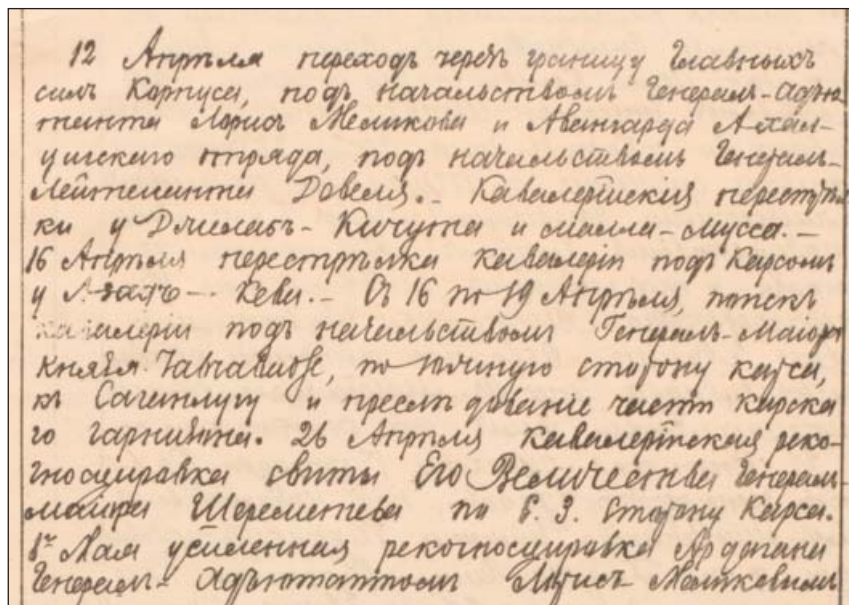 12 Апрѣля переходъ черезъ границу Главныхъ
силъ Корпуса, подъ начальствомъ Генералъ-Адъю-
танта Лорисъ Меликова и Авангарда Ахал-
цихскаго отряда, подъ начальствомъ Генералъ-
Лейтенанта Девеля. - Кавалерійскія перестрѣл-
ки у и Мусса. -
16 Апрѣля перестрѣлка кавалеріи подъ Карсомъ
у - Кева. - Съ 16 по 19 Апрѣля, поискъ
кавалеріи подъ начальствомъ Генералъ-Маіора
Князя Чавчавадзе, по южную сторону Карса,
къ Саганлугу и преслѣдованіе части карска
го гарнизона. 26 Апрѣля кавалерійская реко-
гносцировка свиты Его Величества Генералъ-
маіора Шереметева по С. З. сторону Карса.
Мая усиленная рекогносцировка Ардагана
Генералъ-Адъютантомъ Лорисъ-Меликовымъ